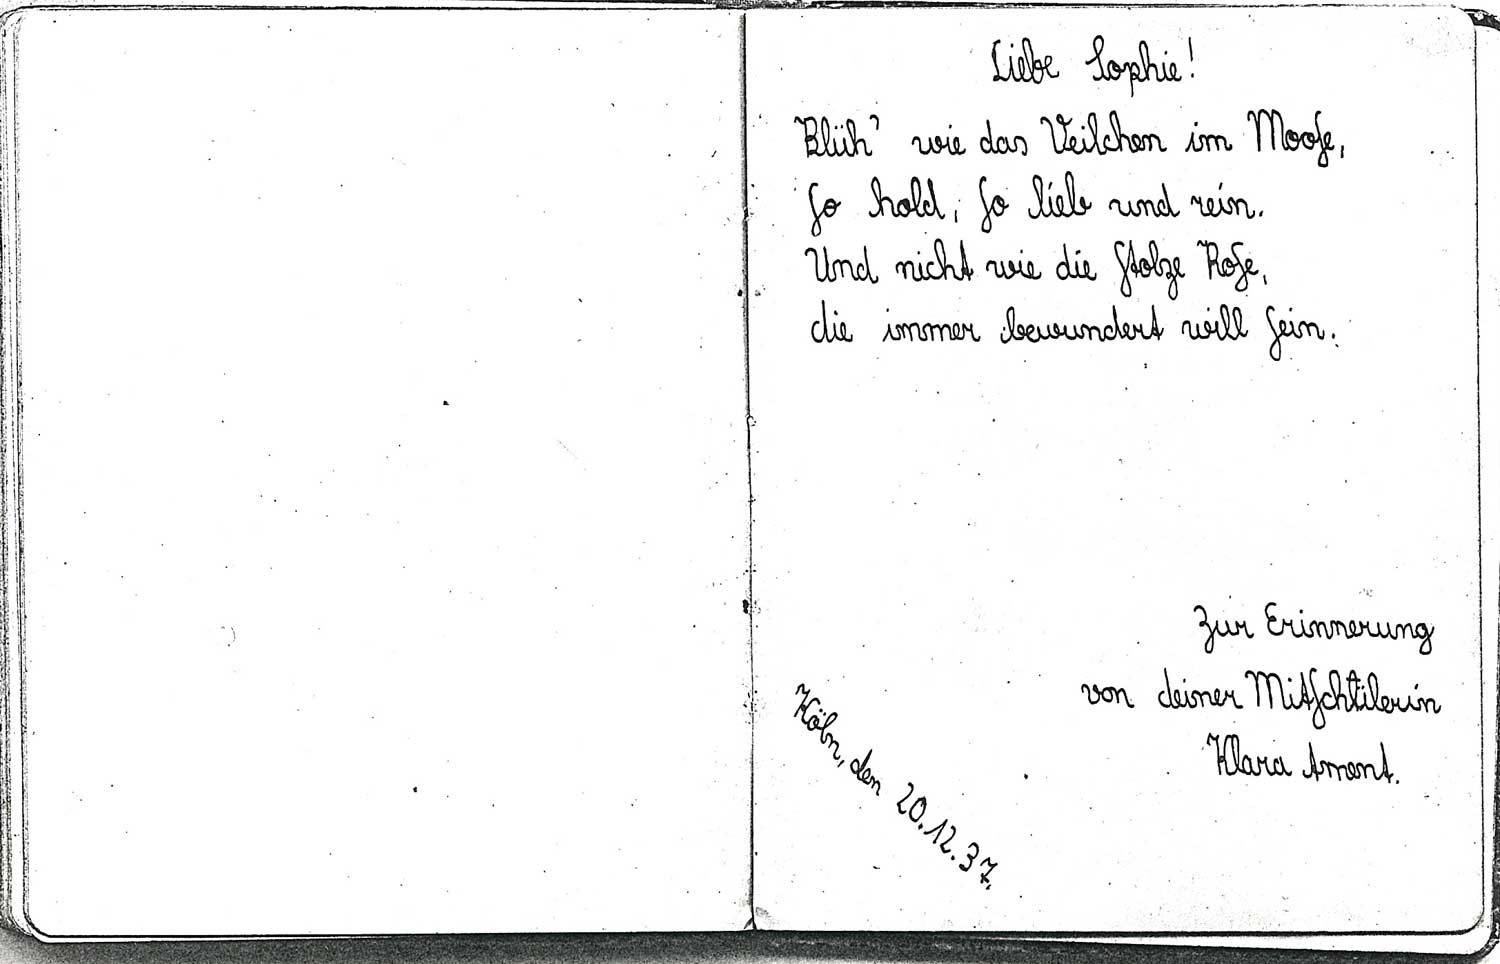 Liebe Sophie!
Blüh' wie das Veilchen im Mooſe,
ſo hold, ſo lieb und rein.
Und nicht wie die ſtolze Roſe,
die immer bewundert will ſein.
Zur Erinnerung
von deiner Mitſchülerin
Klara Ament.
Köln, den 20.12.37.